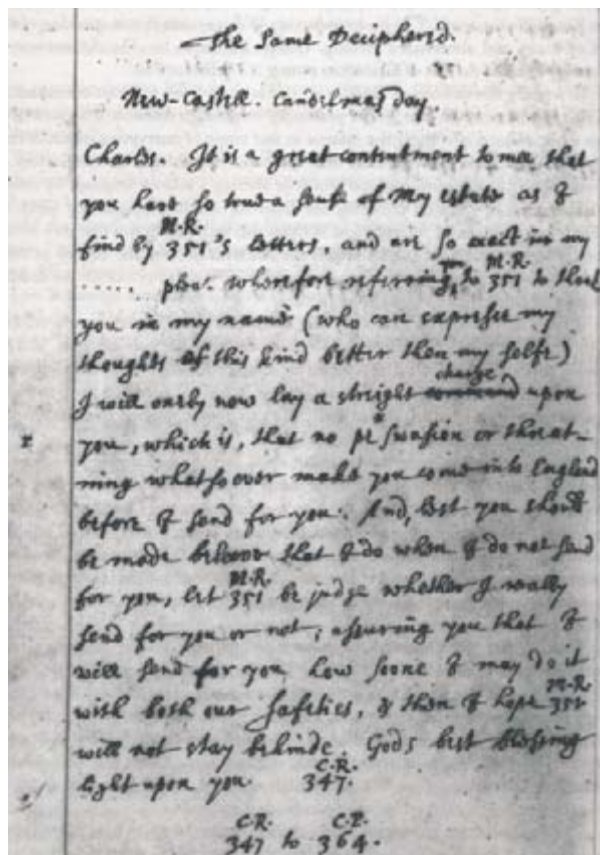 The Same Decipherd.
New-Castell. Candelmas day.
Charles. It is a great contentment to mee that
you have so trew a sense of My estate as I
M.R.
find by 351's Letters, and are so exact in my
M.R.
..... wherefore referring to 351 to
you in my name (who can expresse my
thoughts of this kind better then my selfe)
charge
I will onely now lay a streight command upon
x
you, which is, that no perswasion or threat-
ning whatsoever make you come into England
before I send for you. And, lest you should
be made beleeve that I do when I do not send
M.R.
for you, let 351 be judge whether I really
send for you or not; assuring you that I
will send for you how soone I may do it
M.R.
with both our safeties, & then I hope 351
will not stay behinde. Gods best blessing
C.R.
light upon you. 347.
C.R. C.P.
347 to 364.